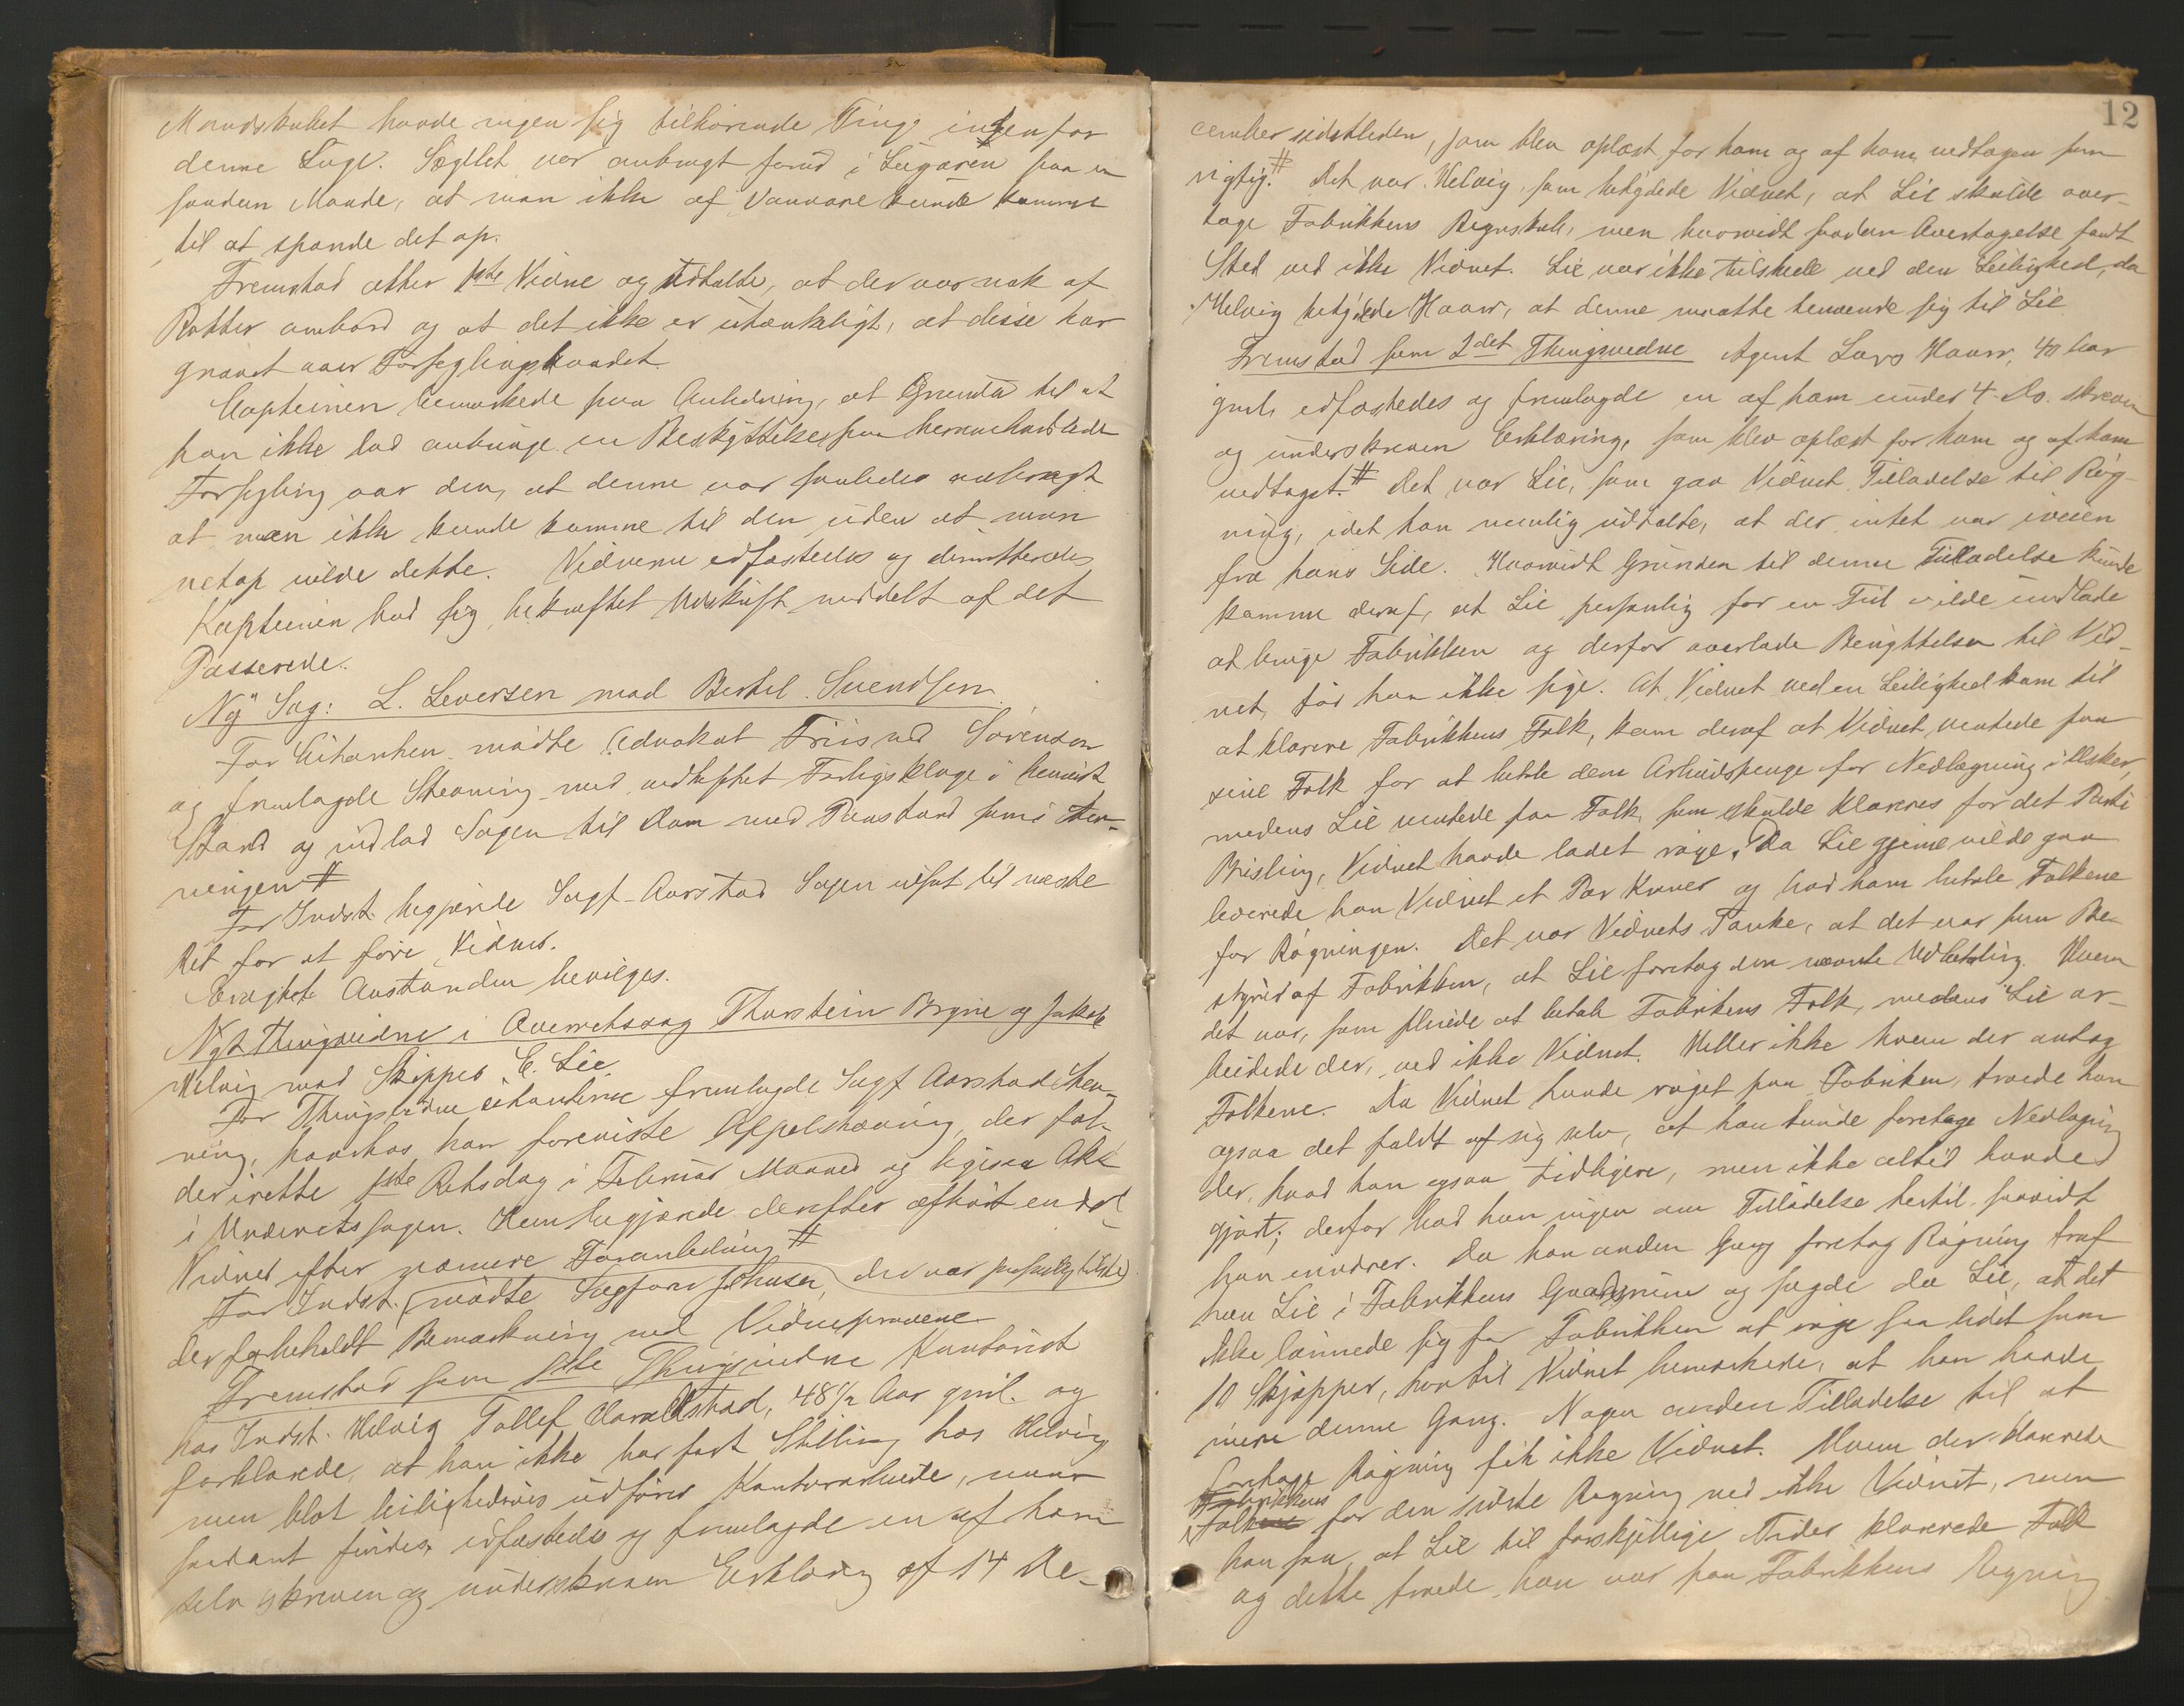 Mandskabet havde ingen sig tilhørende Ting indenfor
denne Luge. Seglet var anbragt forud i Lugaren paa en
saadan Maade, at man ikke af Vanvare kunde komme
til at spænde det op.
Fremstod atter 1ste Vidne og udtalte, at der var nok af
Rotter ombord og at det ikke er utænkeligt, at disse har
gnavet over Forseglingsbaandet.
Kapteinen bemærkede paa Anledning, at Grunden til at
han ikke lod anbringe en Beskyttelse paa heromhandlede
Forsegling var den, at denne var saaledes anbragt
at man ikke kunde komme til den uden at man
netop vilde dette. Vidnerne edfæstedes og dimitteredes
Kapteinen bad sig bekræftet Udskrift meddelt af det
Passerede.
Ny Sag: L. Seversen mod Bertel Svendsen.
For Citanten mødte Advokat Friis ved Sørensen
og fremlagde Stevning med vedheftet Forligsklage i henvist
Stand og indlod Sagen til Dom med Paastand som i Stev-
ningen #
For Indst. begjærede Sagf. Aarstad Sagen udsat til næste
Ret for at føre Vidner.
Eragtet Anstanden bevilges.
Nyt Thingsvidne i Overretssag Thorstein Bryne og Jakob
Helvig mod Skipper E. Lie.
For Thingsvidne citanterne fremlagde Sagf Aarstad Stev-
ning, hvorhos han foreviste Appelstævning, der fal-
der irette 1ste Retsdag i Februar Maaned og ligesaa Akt
i Underretssagen. Han begjærede derefter afhørt en Del
Vidner efter nærmere Foranledning #
For Indst. mødte Sagfører Johnsen, der var personlig tilstede
der forbeholdt Bemærkning ved Vidneprovene
Fremstod som 1ste Thingsvidne Kontorist
hos Indst. Helvig Tollef Haraldstad, 48 1/2 Aar gml. og
forklarede, at han ikke har fast Stilling hos Helvig
men blot leilighedsvis udfører Kontorarbeide, naar
saadant findes, edfæstedes og fremlagde en af ham
selv skreven og underskreven Erklæring af 14 De-
12
cember sidstleden, som blev oplæst for ham og af ham vedtagen som
rigtig. # Det var Helvig, som betydede Vidnet, at Lie skulde over-
tage Fabrikkens Regnskab, men hvorvidt saadan Overtagelse fandt
Sted ved ikke Vidnet. Lie var ikke tilstede ved den Leilighed, da
Helvig betydede Haarr, at denne maatte henvende sig til Lie
Fremstod som 2det Thingsvidne Agent Lars Haarr, 40 Aar
gml, edfæstedes og fremlagde en af ham under 4. Ds. skreven
og underskreven Erklæring, som blev oplæst for ham og af ham
vedtaget. # Det var Lie, som gav Vidnet Tilladelse til Røg-
ning, idet han nemlig udtalte, at der intet var iveien
fra hans Side. Hvorvidt Grunden til denne Tilladelse kunde
komme deraf, at Lie personlig for en Tid vilde undlade
at bruge Fabrikken og derfor overlade Benyttelsen til Vid-
net, tør han ikke sige. At Vidnet ved en Leilighed kom til
at klarere Fabrikkens Folk, kom deraf at Vidnet ventede paa
sine Folk for at betale dem Arbeidspenge for Nedlægning i Æsker,
medens Lie ventede paa Folk, som skulde klareres for det Parti
Brisling, Vidnet havde ladet røge. Da Lie gjerne vilde gaa
leverede han Vidnet et Par Kroner og bad ham betale Folkene
for Røgningen. Det var Vidnets Tanke, at det var som Be-
styrer af Fabrikken, at Lie foretog den nævnte Udbetaling. Hvem
det var, som pleiede at betale Fabrikens Folk, medens Lie ar-
beidede der, ved ikke Vidnet. Heller ikke hvem der antog
Folkene. Da Vidnet havde røget paa Fabriken, troede han
ogsaa det faldt af sig selv, at han kunde foretage Nedlægning
der, hvad han ogsaa tidligere, men ikke altid havde
gjort; derfor bad han ingen om Tilladelse hertil saavidt
han mindres. Da han anden Gang foretog Røgning traf
han Lie i Fabrikkens Gaardsrum og sagde da Lie, at det
ikke lønnede sig for Fabrikken at røge saa lidet som
10 Skjæpper, hvortil Vidnet bemærkede, at han havde
mere denne Gang. Nogen anden Tilladelse til at
foretage Røgning fik ikke Vidnet. Hvem der klarerede
Fabrikkens
Folkene for den sidste Røgning ved ikke Vidnet, men
han saa, at Lie til forskjellige Tider klarerede Folk
og dette troede han var paa Fabrikkens Regning